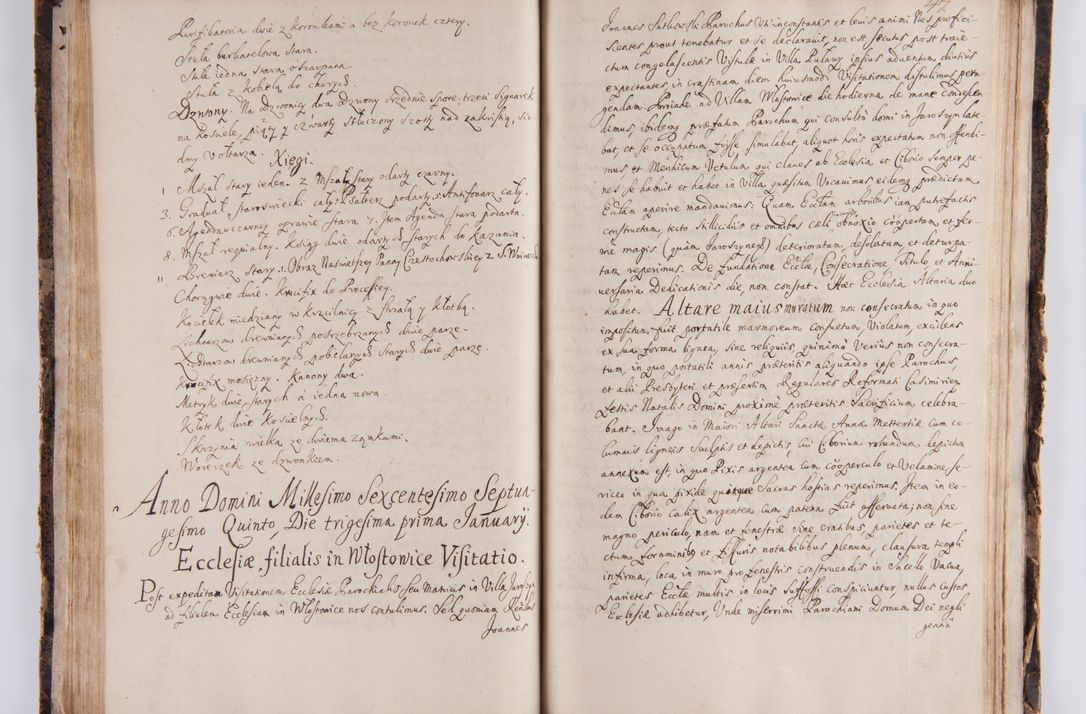 Purificatoria dwie z koronkami a bez koronek cztery.
Stuła barkatelowa stara.
Stuła iedna stara oszarpana.
Stuła z kobielą do chorych.
Dzwony. Na Dzwonicy dwa Dzwony srzednie spore, trzeci Sygnarek
na Kosciele, piąty z czwarty stłuczony szosty nad zakristią, sio-
dmy v ołtarza. Xięgi.
1 Mszał stary ieden. z Mszał stary odarty czarny.
3. Graduał Starowiecki cały. Psałterz podarty. 5. Antifonarz cały.
6. Agenda w czarney oprawie stara 7. Item Agenda stara podarta.
8. Mszał requialny. Ksiąg dwie odartych starych do Kazania.
11 Brewiarz Stary. 1. Obraz Naświetszey Panny Częstochowskiey z S.
Chorągwie dwie. Krucifix do Processey.
Kociełek miedziany w krzcilnicy z strzałą y kłotką.
Lichtarzow drewnianych postrzebrzanych dwie parze.
Lichtarzow drewnianych pobielanych starych dwie parze.
Krucifix mosiężny. Kanony dwa.
Metryk dwie starych a iedna nowa.
Kłotek dwie Koscielnych.
Skrzynia wielka ze dwiema zamkami.
Woreczek ze dzwonkiem.
Anno Domini Millesimo Sexcentesimo Septua-
gesimo Quinto, Die trigesima prima Januarij.
Ecclesiæ filialis in Włostowice Visitatio.
Post expeditam Visitationem Ecclesiæ Parochialis seu Matricis in Villa Jaroszyn
ad filialem Ecclesiam in Włostowice nos contulimus. Sed quoniam Rendus
Joannes
47
Joannes Sutkowski Parochus Vti inconstantis et levis animi Nos profici-
scentes prout tenebatur et se declaravit, non est secutus post traie-
ctum congelascentis Vistulæ in Villa Pulawy ipsius adventum diutius
expectantes, in crastinam diem huiusmodi Visitationem distulimus pera-
gendam. Proinde ad Villam Włostowice die hodierna de mane condescen-
dimus, ibidemq præfatum Parochum qui consulto domi in Jaroszyn late-
bat, et se occupatum fuisse simulabat, aliquot horis expectatum non offendi-
mus, et Mendicum Vetulum qui claues ab Ecclesia et Ciborio semper pe-
nes se habuit et habet in Villa quæsitum Vocauimus eidemq prædictam
Ecclam aperire mandauimus: Quam Ecclam arboribus iam putrefactis
constructam, tecto stillicidiis et omnibus cœli iniuriis obnoxio coopertam, et fer-
me magis (quam Jaroszynen) deterioratam, desolatam, et deturpa-
tam reperimus. De fundatione Ecclæ, Consecratione, Titulo et Anni-
uersaria Dedicationis die, non constat. Hæc Ecclesia Altaria duo
habet. Altare maius muratum non consecratum in quo
impositum fuit portatile marmoreum confractum, Violatum, excidens
ex sua forma lignea, sine reliquiis quinimo Verius non consecra-
tum, in quo portatili annis præteritis aliquando ipse Parochus,
et alii Presbyteri et præsertim Regulares Reformati Casimirien
Festis Natalis Domini proxime præteritis Sacrificium celebra-
bant. Imago in Maiori Altari Sanctæ Annæ Mettertiæ cum co-
lumnis ligneis sculptis et depictis, cui Ciborium rotundum depictum
annexum est, in quo Pixis argentea cum cooperculo et Velamine se-
riceo in qua pixide quinque Sacras hostias reperimus. Item in eo-
dem Ciborio Calix argenteus cum patena fuit asseruata; non sine
magno periculo, nam et fenestræ sine cratibus, parietes et te-
ctum foraminibus et fissuris notabilibus plenum, clausura templi
infirma, loca in muro pro fenestris construendis in Sacello Vacua,
parietes Ecclæ multis in locis suffossi conspiciuntur nullus custos
Ecclesiæ adhibetur, Vnde miserrimi Parochiani Domum Dei negli
gentia